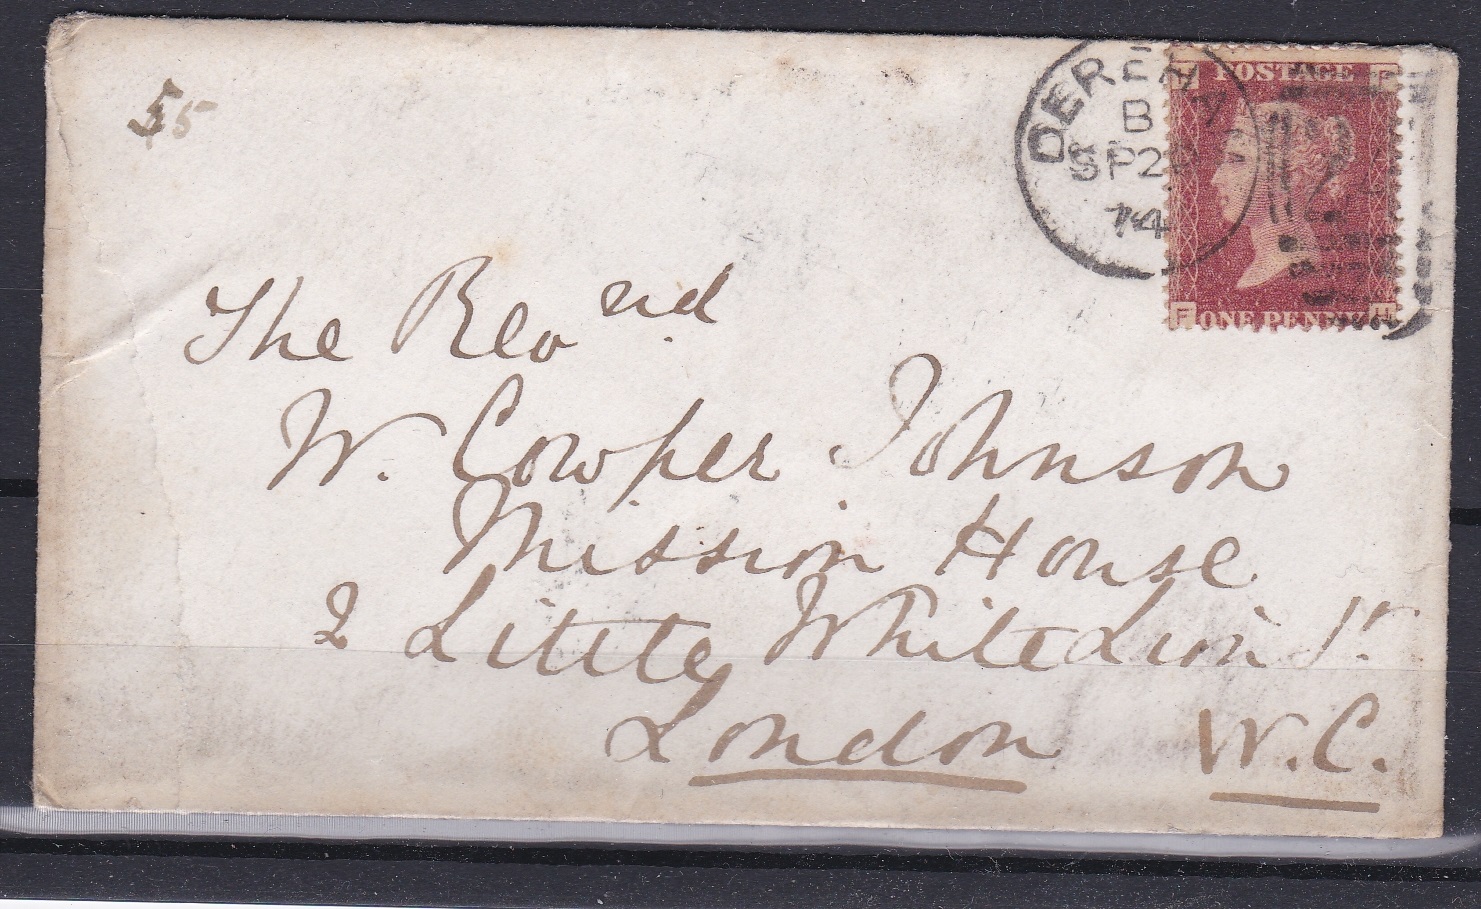 55
DEREHAM
B
SP 2
74
POSTAGE
ONE PENNY
F
The Revend
W. Cowper Johnson
Mission House
2 Little White Lion St.
London W.C.